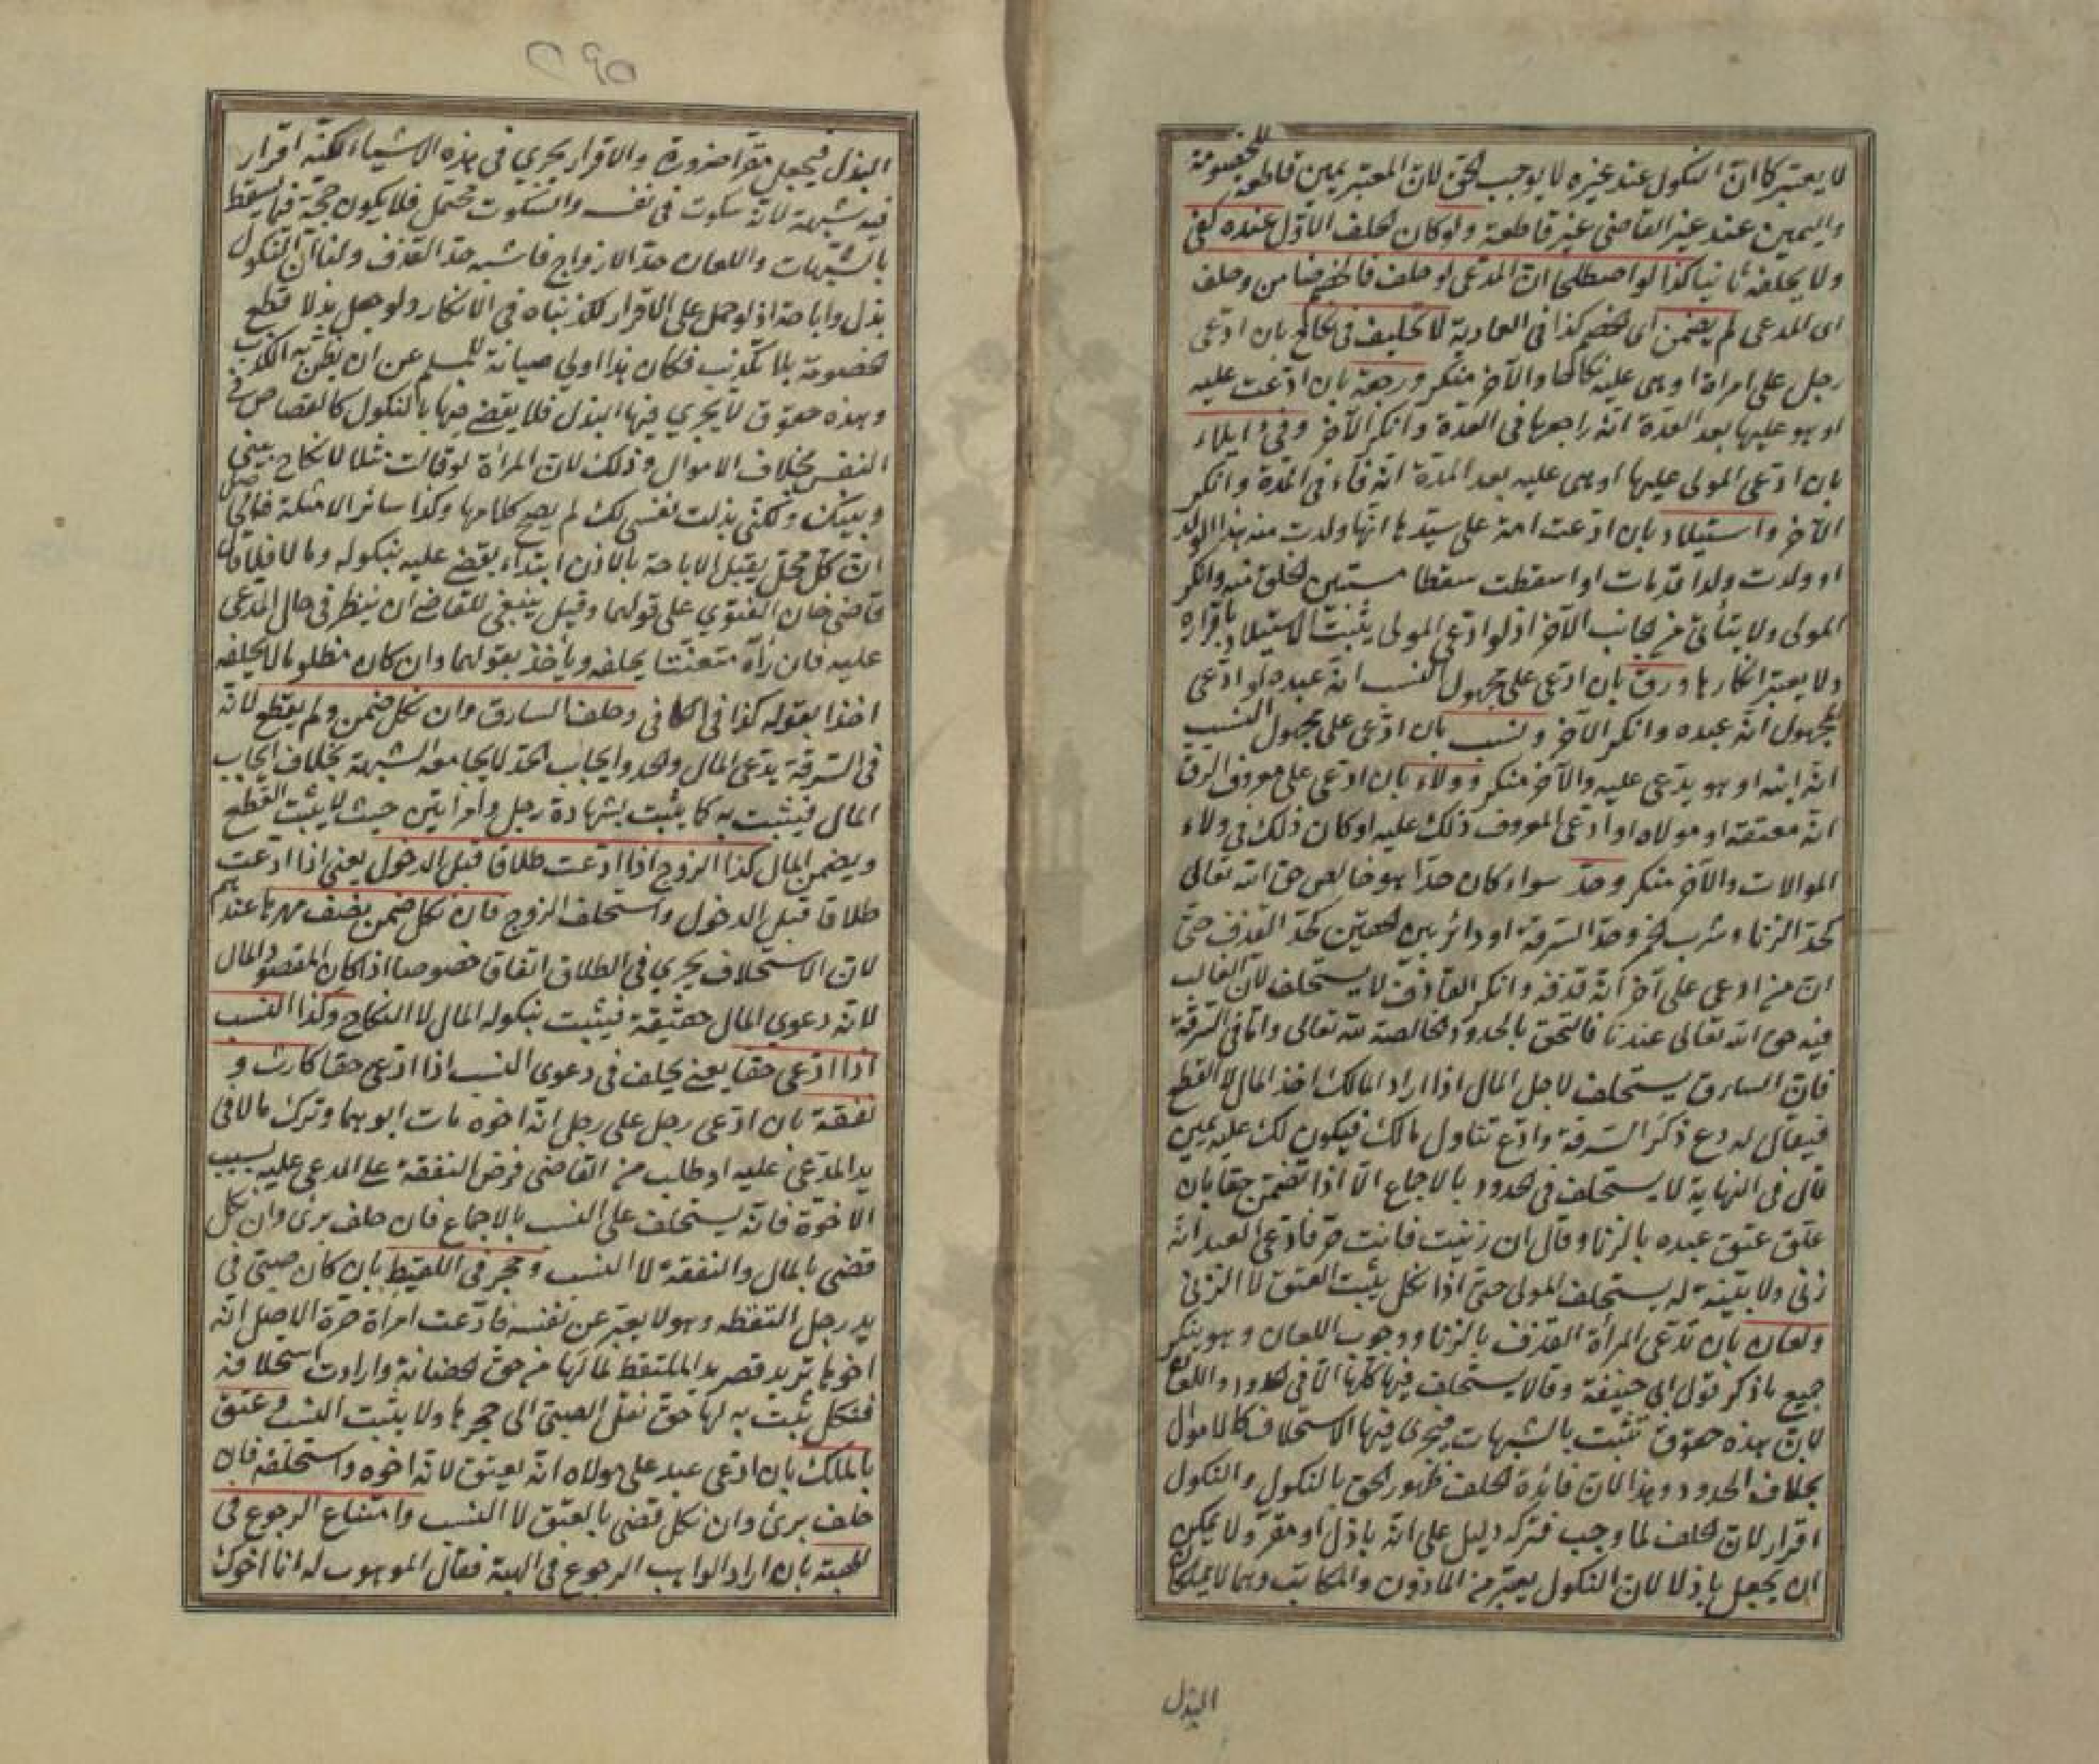 لا يعتبر كما ان النكول عند غيره لا يوجب الحق لان المعتبر يمين قاطعة للخصومة
واليمين عند غير القاضي غير قاطعة ولو كان الحلف الاول عنده كفى
ولا يحلفه ثانيا كذا لو اصطلحا ان المدعي لو حلف فالخصم ضامن وحلف
اي المدعي لم يضمن اي الخصم كذا في العمادية لا تحليف في نكاح بان ادعى
رجل على امرأة او هي عليه نكاحا والآخر منكر ورجعة بان ادعت عليه
او هو عليها بعد العدة انه راجعها في العدة وانكر الآخر وفيء ايلاء
بان ادعى المولي عليها او هي عليه بعد المدة انه فاء في المدة وانكر
الآخر واستيلاد بان ادعت امة على سيدها انها ولدت منه هذا الولد
او ولدت ولدا قد مات او اسقطت سقطا مستبين الخلق منه وانكر
المولى ولا يتأتى من الجانب الآخر اذ لو ادعى المولى يثبت الاستيلاد باقراره
ولا يعتبر انكارها ورق بان ادعى على مجهول النسب انه عبده او ادعى
المجهول انه عبده وانكر الآخر ونسب بان ادعى على مجهول النسب
انه ابنه او هو يدعي عليه والآخر منكر وولاء بان ادعى على معروف الرق
انه معتقه او مولاه او ادعى المعروف ذلك عليه او كان ذلك في ولاء
الموالات والآخر منكر وحد سواء كان حدا هو خالص حق الله تعالى
كحد الزنا وشرب الخمر وحد السرقة او دائر بين الحقين كحد القذف حتى
ان من ادعى على آخر انه قذفه وانكر القاذف لا يستحلف لان الغالب
فيه حق الله تعالى عندنا فالتحق بالحدود الخالصة لله تعالى واما في السرقة
فان السارق يستحلف لاجل المال اذا اراد المالك اخذ المال لا القطع
فيقال له دع ذكر السرقة وادع تناول مالك فيكون لك عليه يمين
قال في النهاية لا يستحلف في الحدود بالاجماع الا اذا تضمن حقا بان
علق عتق عبده بالزنا وقال ان زنيت فانت حر فادعى العبد انه
زنى ولا بينة له يستحلف المولى حتى اذا نكل يثبت العتق لا الزنى
ولعان بان تدعي المرأة القذف بالزنا ووجوب اللعان وهو ينكر
جميع ما ذكر قول ابي حنيفة وقالا يستحلف فيها كلها الا في الحدود واللعان
لان هذه حقوق تثبت بالشبهات فيجري فيها الاستحلاف كالاموال
بخلاف الحدود وهذا لان فائدة الحلف ظهور الحق بالنكول والنكول
اقرار لان الحلف لما وجب فتركه دليل على انه باذل او مقر ولا يمكن
ان يجعل باذلا لان النكول يعتبر من المأذون والمكاتب وهما لا يملكان
البذل
٢٩٥
البذل فيجعل مقرا ضرورة والاقرار يجري في هذه الاشياء لكنه اقرار
فيه شبهة لانه سكوت في نفسه والسكوت محتمل فلا يكون حجة فيما يسقط
بالشبهات واللعان حد الازواج فاشبه حد القذف ولنا ان النكول
بذل واباحة اذ لو حمل على الاقرار لكذبناه في الانكار ولو جعل بذلا قطع
الخصومة بلا تكذيب فكان هذا اولى صيانة للمسلم عن ان يظن به الكذب
وهذه حقوق لا يجري فيها البذل فلا يقضى فيها بالنكول كالقصاص في
النفس بخلاف الاموال وذلك لان المرأة لو قالت مثلا لا نكاح بيني
وبينك ولكني بذلت نفسي لك لم يصح كلامها وكذا سائر الامثلة فالحاصل
ان كل محل يقبل الاباحة بالاذن ابتداء يقضى عليه بنكوله وما لا فلا قال
قاضي خان الفتوى على قولهما وقيل ينبغي للقاضي ان ينظر في حال المدعى
عليه فان رآه متعنتا يحلفه ويأخذ بقولهما وان كان مظلوما لا يحلفه
اخذا بقوله كذا في الكافي وحلف السارق وان نكل ضمن ولم يقطع لانه
في السرقة يدعي المال والحد وايجاب الحد لا يجامعه الشبهة بخلاف ايجاب
المال فيثبت به كما يثبت بشهادة رجل وامرأتين حيث لا يثبت القطع
ويضمن المال كذا الزوج اذا ادعت طلاقا قبل الدخول يعني اذا ادعت
طلاقا قبل الدخول واستحلف الزوج فان نكل ضمن نصف مهرها عندهم
لان الاستحلاف يجري في الطلاق اتفاقا خصوصا اذا كان المقصود المال
لانه دعوى المال حقيقة فيثبت بنكوله المال لا النكاح وكذا النسب
اذا ادعى حقا يعني يحلف في دعوى النسب اذا ادعى حقا كارث و
نفقة بان ادعى رجل على رجل انه اخوه مات ابوهما وترك مالا في
يد المدعى عليه او طلب من القاضي فرض النفقة على المدعى عليه بسبب
الاخوة فانه يستحلف على النسب بالاجماع فان حلف برئ وان نكل
قضى بالمال والنفقة لا النسب وحجر في اللقيط بان كان صبي في
يد رجل التقطه وهو لا يعبر عن نفسه فادعت امرأة حرة الاصل انه
اخوها تريد قصر يد الملتقط لما لها من حق الحضانة وارادت استحلافه
فنكل يثبت به لها حق نقل الصبي الى حجرها ولا يثبت النسب وعتق
بالملك بان ادعى عبد على مولاه انه يعتق لانه اخوه واستحلفه فان
حلف برئ وان نكل قضى بالعتق لا النسب وامتناع الرجوع في
الهبة بان اراد الواهب الرجوع في الهبة فقال الموهوب له انا اخوك